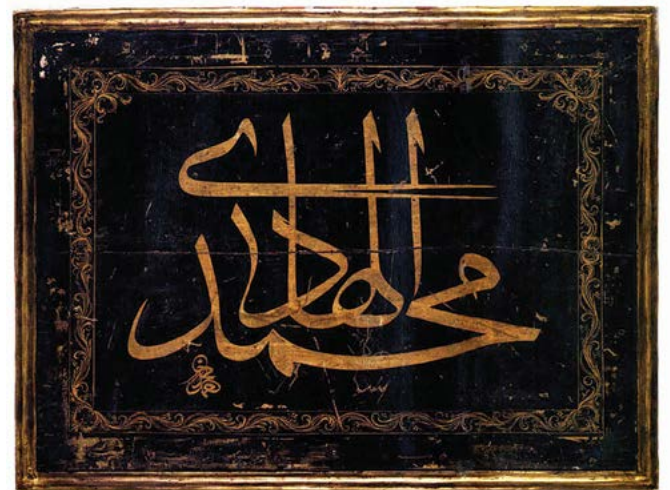 محمد الهادى